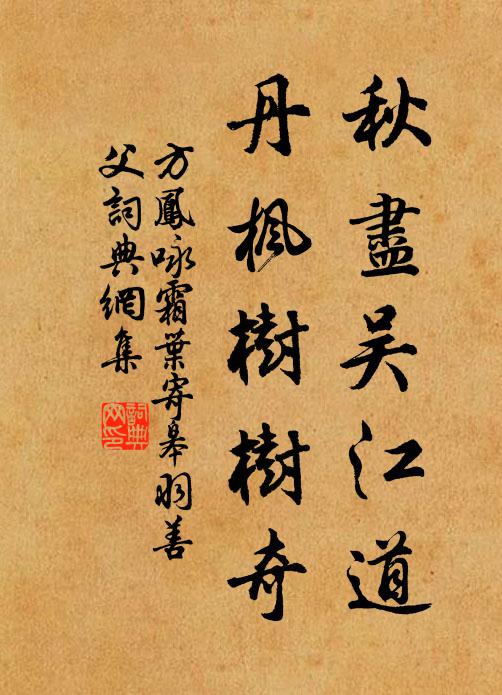 秋盡吴江道
丹楓樹樹奇
方鳳咏霜葉寄皋羽善
父詞典網集
詞典網印